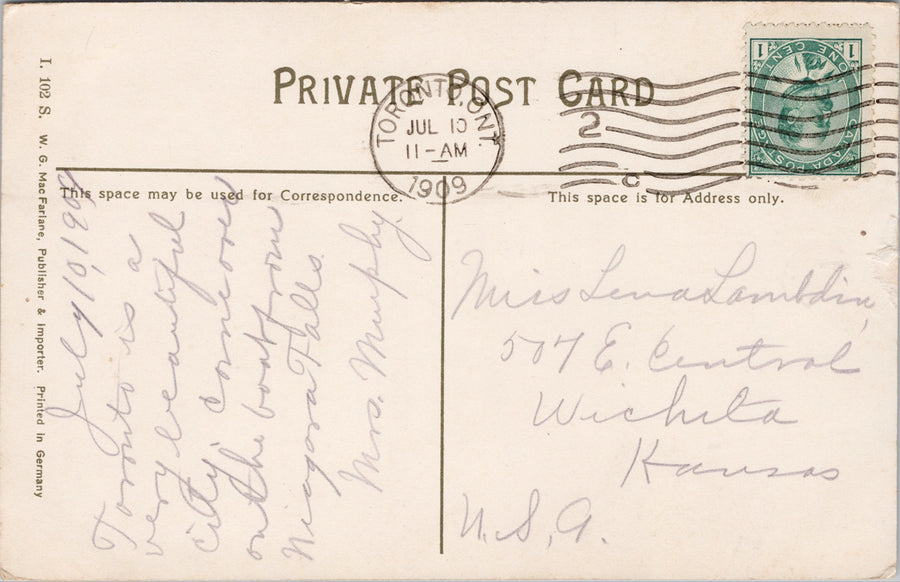 PRIVATE POST CARD
TORONTO, ONT.
JUL 10
11-AM
1909
2
C
1 1
ONE CENT
CANADA POSTAGE
I. 102 S. W. G. MacFarlane, Publisher & Importer. Printed in Germany
This space may be used for Correspondence.
This space is for Address only.
July 10, 1909
Toronto is a
very beautiful
city come over
on the boat from
Niagara Falls.
Mrs. Murphy.
Miss Leva Lambdin,
507 E. Central
Wichita
Kansas
U.S.A.